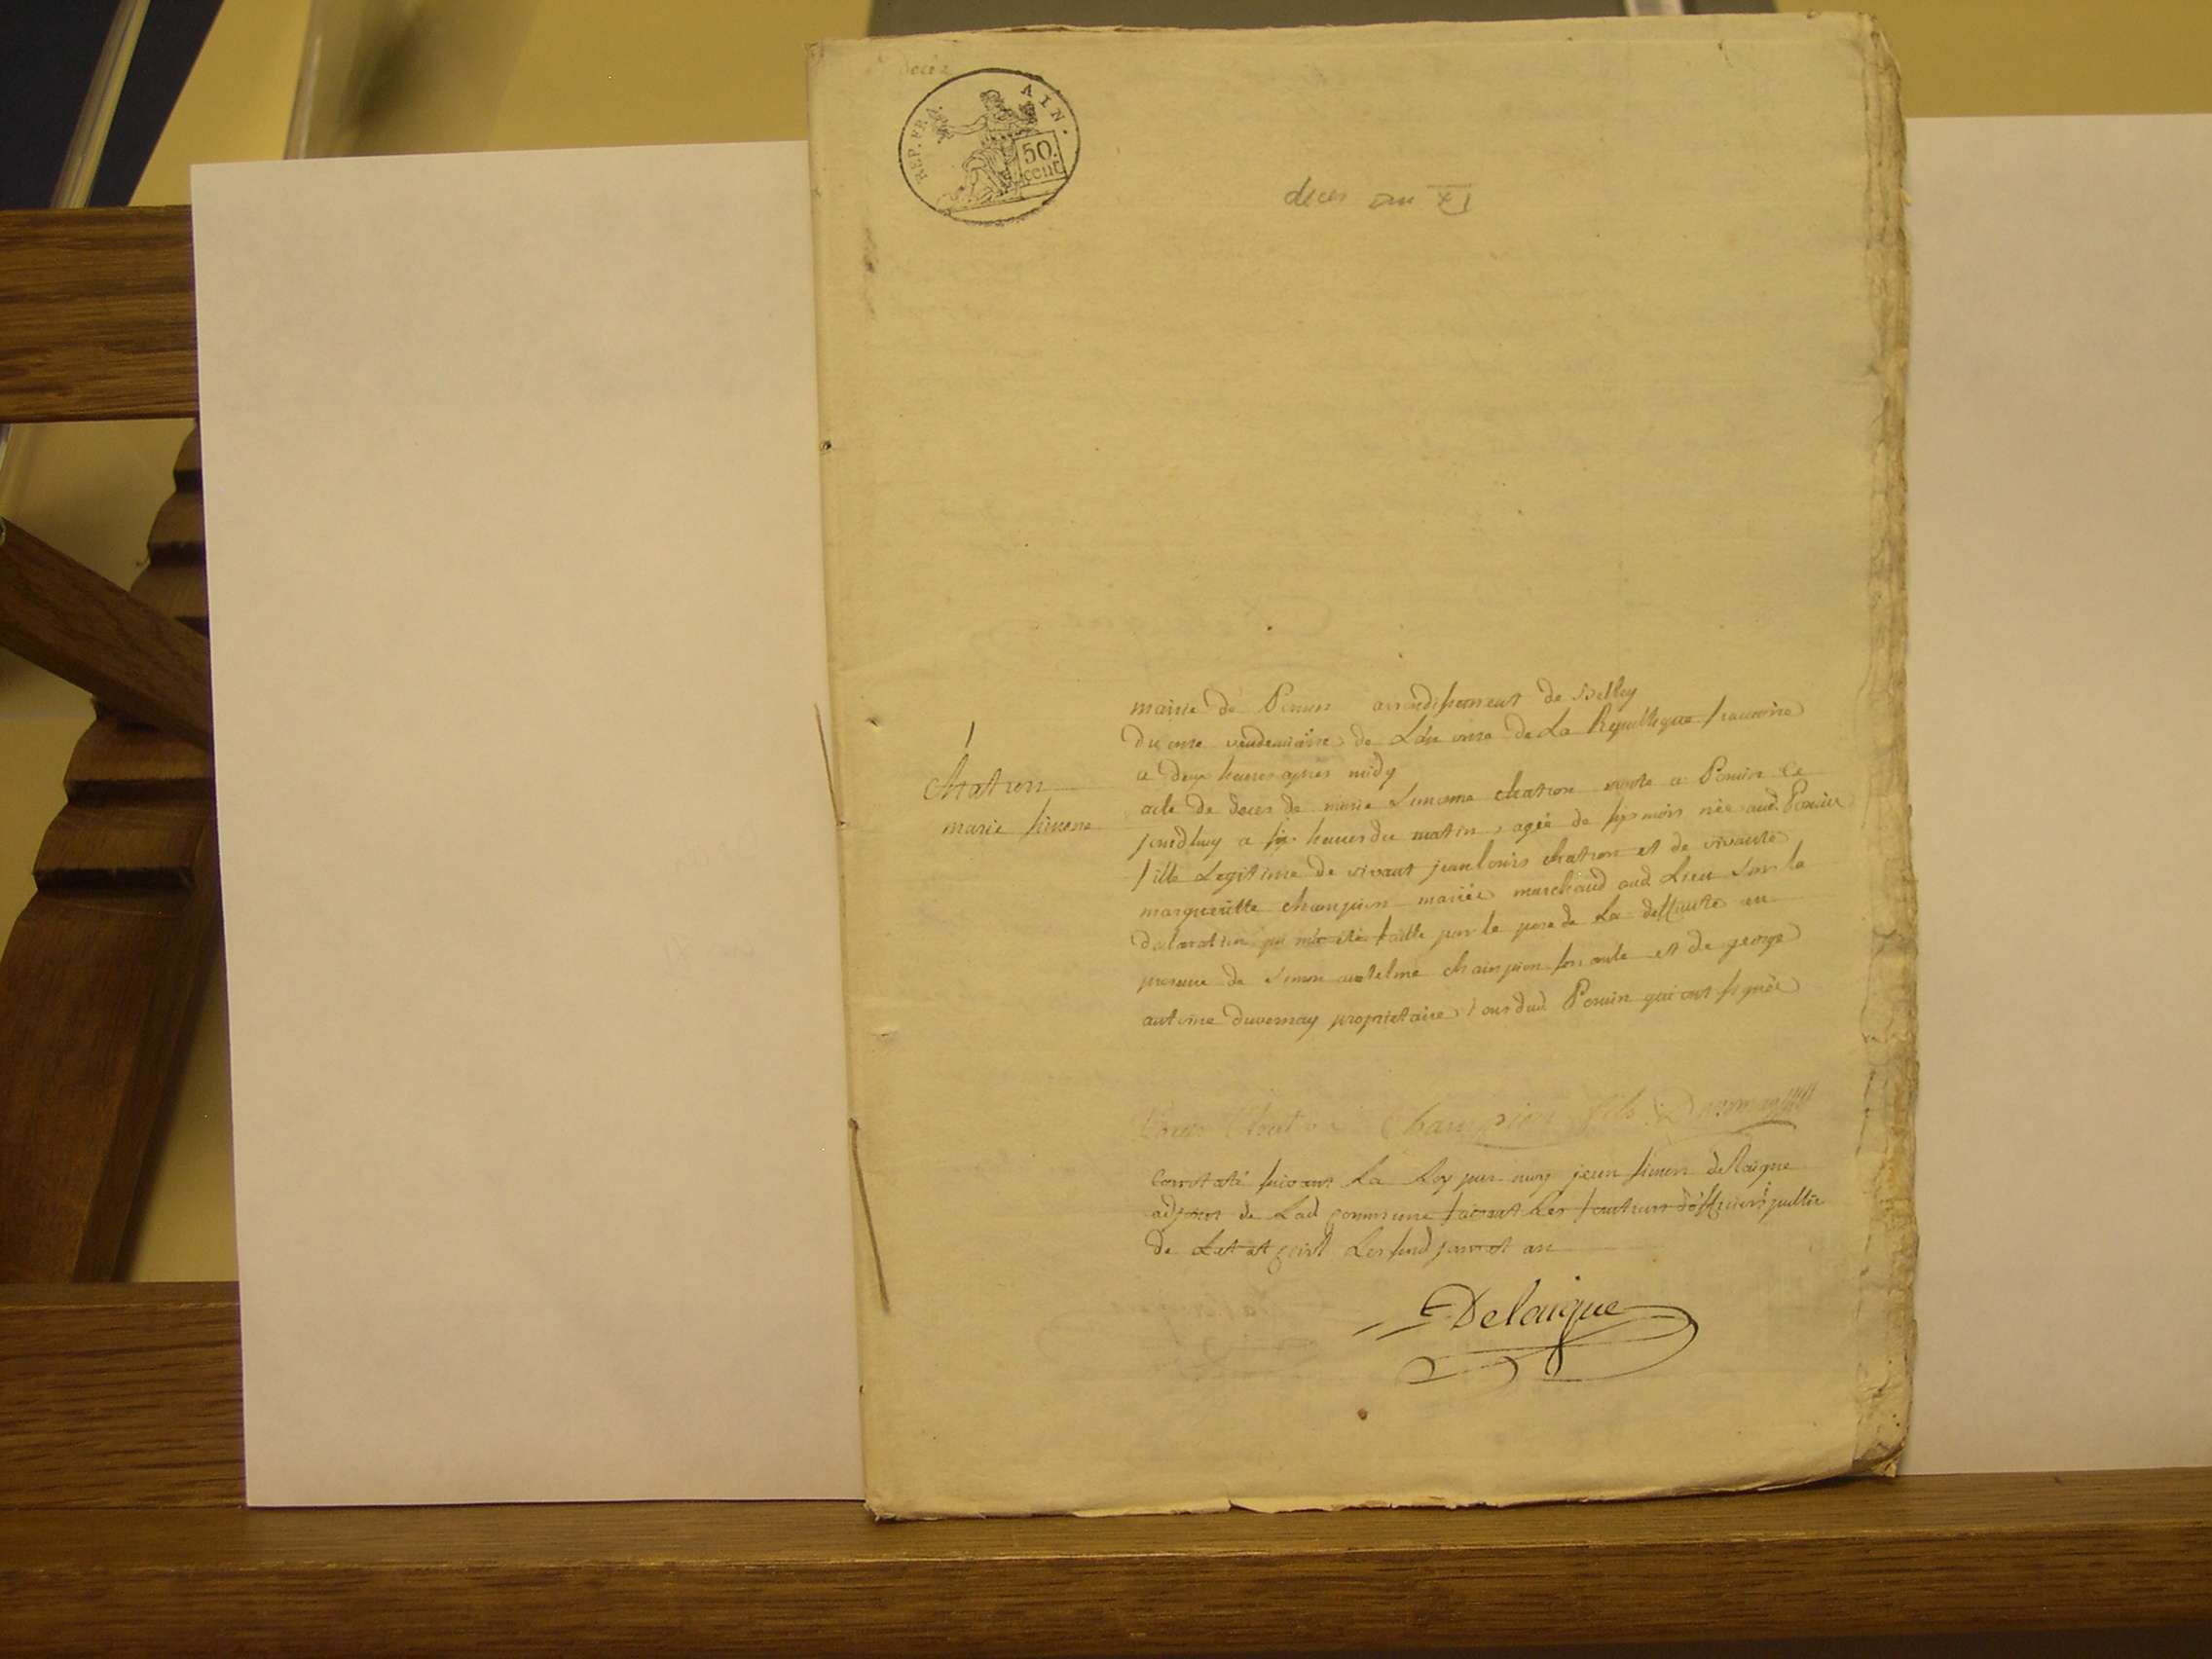 decès
REP. FRA. AIN.
50.
cent
deces an XI
mairie de Ponein arrondissement de Belley
Du onze vendemiaire de L'an onze de La Republique francoise
a deux heures apres midy
1
Chatron
marie simone
acte de deces de marie Simonne chatron morte a Poncin ce
jourdhuy a six heures du matin, agée de six mois née aud. Poncin
fille Legitime de vivant jean louis chatron et de vivante
margueritte champion mariée marchand aud. Lieu sur la
declaration qui m'a été faitte par le pere de La deffunte en
presence de Simon antelme champion son oncle et de george
antoine duvernay proprietaire tous dud. Poncin qui ont signés
Louis Chatron Champion fils Duvernay
Constaté suivant La Loy par moy jean simon delaigue
adjoint de Lad commune faisant Les fonctions d'officiers public
de L'etat civil Les susd. jour et an
Delaigue